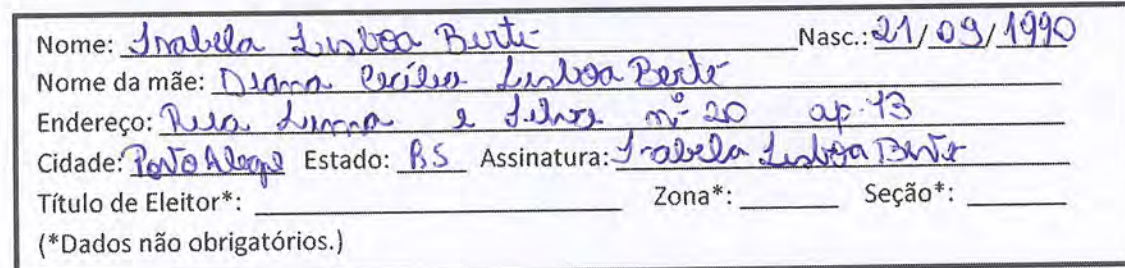 Nome: Isabela Lisboa Berté Nasc.: 21/09/1990
Nome da mãe: Diana Cecília Lisboa Berté
Endereço: Rua Lima e Silva nº 20 ap. 13
Cidade: Porto Alegre Estado: RS Assinatura: Isabela Lisboa Berté
Título de Eleitor*: Zona*: Seção*:
(*Dados não obrigatórios.)